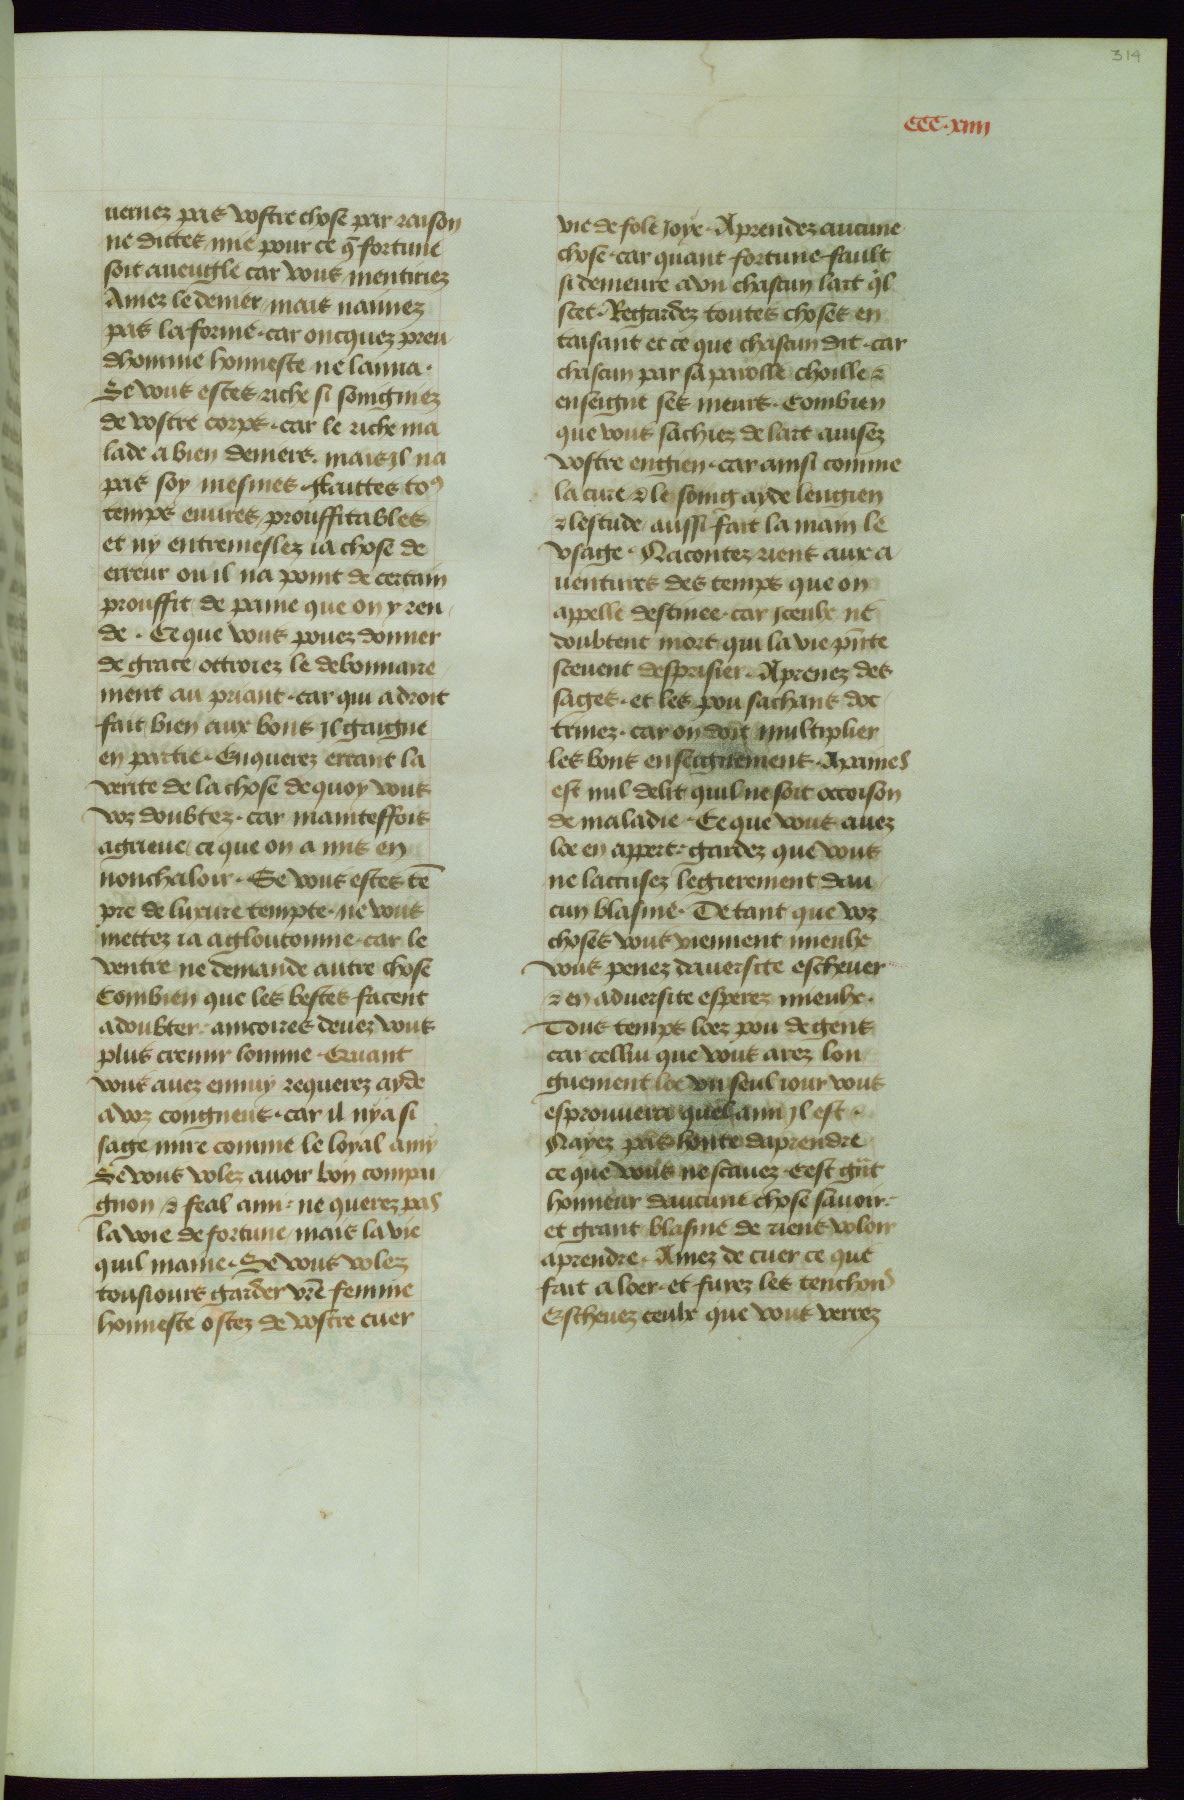 314
CCC·xiiii
uernez pas vostre chose par raison
ne dittes mie pour ce q̃ fortune
soit aueugle car vous mentiriez
Amez le denier mais namez
pas la forme · car oncquez preu
dhomme honneste ne lama ·
Se vous estes riche si soingniez
de vostre corps · car le riche ma
lade a bien deniers · mais il na
pas soy mesmes · ffaittes toꝰ
temps euures prouffitables
et ny entremeslez ia chose de
erreur ou il na point de certain
prouffit de paine que on y ren
de · Ce que vous pouez donner
de grace ottroiez le debonnaire
ment au priant · car qui a droit
fait bien aux bons il gaigne
en partie · Enquerez errant la
verite de la chose de quoy vous
voz doubtez · car mainteffois
agrieue ce que on a mis en
nonchaloir · Se vous estes tẽ
pre de luxure tempte · ne vous
mettez ia a gloutonnie · car le
ventre ne demande autre chose
Combien que les bestes facent
a doubter · aincoires deuez vous
plus cremir lomme · Quant
vous auez ennuy requerez ayde
a voz congneus · car il ny a si
sage mire comme le loyal amy
Se vous volez auoir bon compai
gnon ⁊ feal ami · ne querez pas
la voie de fortune mais la vie
quil maine · Se vous volez
tousiours garder vr̃e femme
honneste ostez de vostre cuer
vie de fole joye · Aprendez aucune
chose · car quant fortune fault
si demeure a vn chascun lart q̉l
scet · Regardez toutes choses en
taisant et ce que chascun dit · car
chascun par sa parolle choille ⁊
enseigne ses meurs · Combien
que vous sachiez de lart auisez
vostre engien · car ainsi comme
la cure ⁊ le soing ayde lengien
⁊ lestude aussi fait la main le
vsage · Nacontez riens aux a
uentures des temps que on
appelle destinee · car jceulx ne
doubtent mort qui la vie p̃nte
sceuent desprisier · Aprenez des
sages · et les pou sachans doc
trinez · car on doit multiplier
les bons enseignement · A paines
est nul delit quil ne soit occoison
de maladie · Ce que vous auez
loe en appert · gardez que vous
ne laccusez legierement dau
cun blasme · De tant que voz
choses vous viennent mieulx
vous penez dauersite escheuer
⁊ en aduersite esperez mieulx ·
Tous temps loez pou de gens
car cellui que vous arez lon
guement loe vn seul iour vous
esprouuera quel ami jl est ·
Nayez pas honte daprendre
ce que vous ne scauez · Cest grãt
honneur daucune chose sauoir ·
et grant blasme de riens voloir
aprendre · Amez de cuer ce que
fait a loer · et fuiez les tenchons
Escheuez ceulx que vous verrez